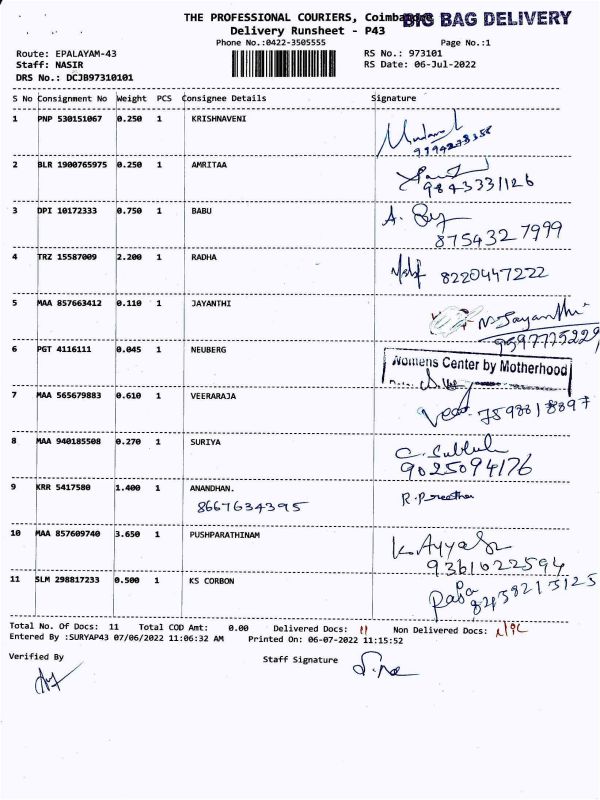 THE PROFESSIONAL COURIERS, Coimbatore BIG BAG DELIVERY
Delivery Runsheet - P43
Phone No.:0422-3505555 Page No.:1
Route: EPALAYAM-43 RS No.: 973101
Staff: NASIR RS Date: 06-Jul-2022
DRS No.: DCJB97310101
S No Consignment No Weight PCS Consignee Details Signature
1 PNP 530151067 0.250 1 KRISHNAVENI
2 BLR 1900765975 0.250 1 AMRITAA
9843331126
3 DPI 10172333 0.750 1 BABU A.
8754327999
4 TRZ 15587009 2.200 1 RADHA 8220447222
5 MAA 857663412 0.110 1 JAYANTHI N. Jayanthi
9597775229
6 PGT 4116111 0.045 1 NEUBERG Womens Center by Motherhood
7 MAA 565679883 0.610 1 VEERARAJA 7598818897
8 MAA 940185508 0.270 1 SURIYA C.
9025094176
9 KRR 5417580 1.400 1 ANANDHAN. R.Preetha
8667634395
10 MAA 857609740 3.650 1 PUSHPARATHINAM K.Ayya
9361022594
11 SLM 298817233 0.500 1 KS CORBON Papa
8438213125
Total No. Of Docs: 11 Total COD Amt: 0.00 Delivered Docs: 11 Non Delivered Docs: NIL
Entered By :SURYAP43 07/06/2022 11:06:32 AM Printed On: 06-07-2022 11:15:52
Verified By Staff Signature